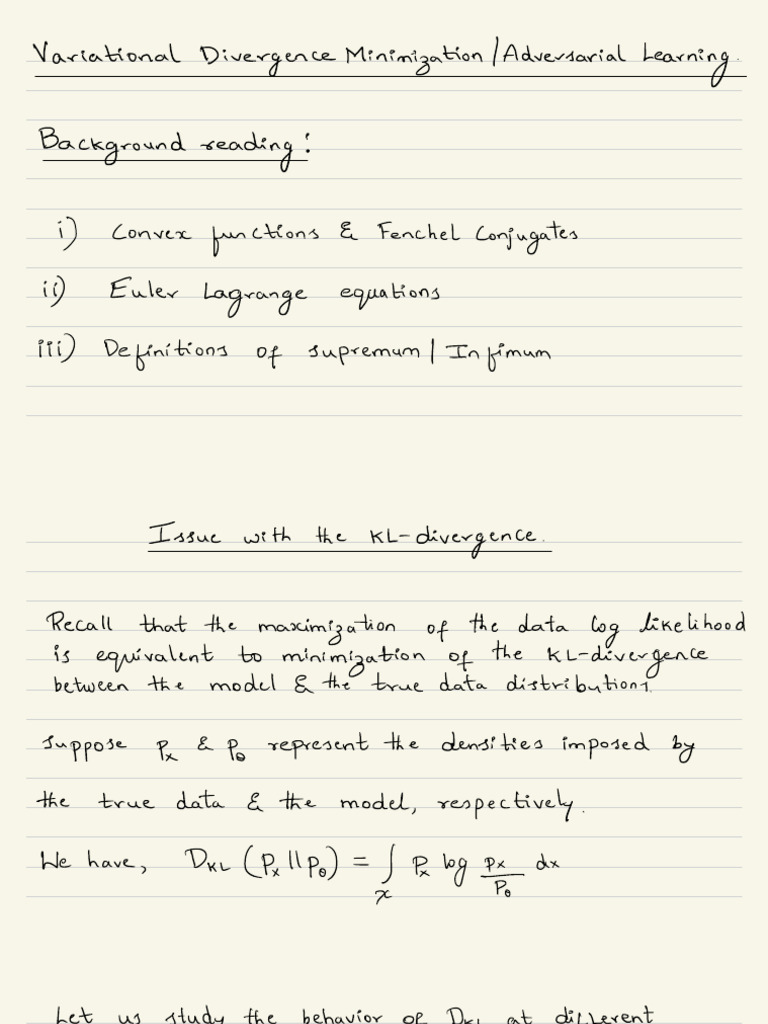 Variational Divergence Minimization/Adversarial Learning.
Background reading:
i) Convex functions & Fenchel Conjugates
ii) Euler Lagrange equations
iii) Definitions of supremum/Infimum
Issue with the KL-divergence.
Recall that the maximization of the data log likelihood
is equivalent to minimization of the KL-divergence
between the model & the true data distributions.
Suppose Pₓ & P_θ represent the densities imposed by
the true data & the model, respectively.
We have, D_KL (Pₓ || P_θ) = ∫_χ Pₓ log Pₓ/P_θ dx
Let us study the behavior of D_KL at different